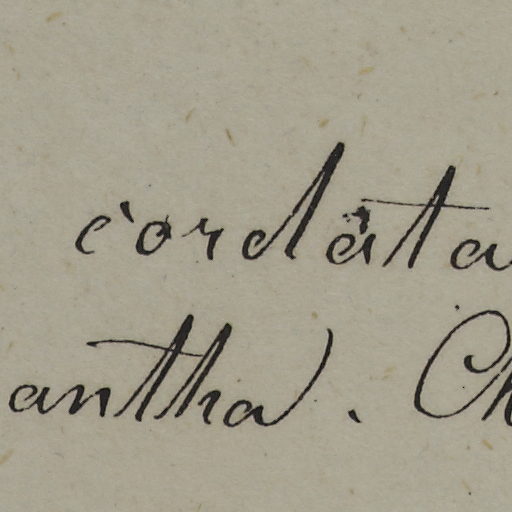 cordata
antha). Ch